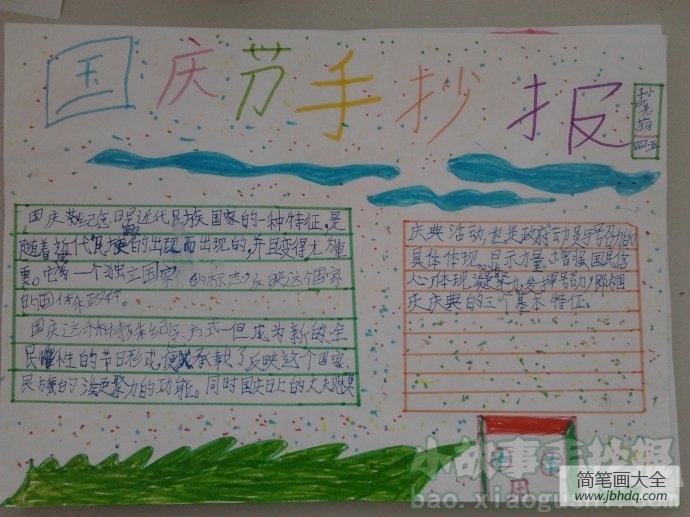 国庆节手抄报
国庆纪念日是近代民族国家的一种特征,是
随着近代民族的出现而出现的,并且变得尤为重
要。它 一个独立国家 的标志,反映这个国家
的国体和政体。
国庆这种特殊纪念方式一但成为新的、全
民性的节日形式,便承载了反映这个国家、
民族的凝聚力的功能。同时国庆日上的大
庆典活动,也是政府动员与号召力的
具体体现。显示力量、增强国民信
心,体现凝聚力,发挥号召力,即为国
庆庆典的三个基本特征。
小故事手抄报
bao.xiaogushi.com
简笔画大全
www.jbhdq.com